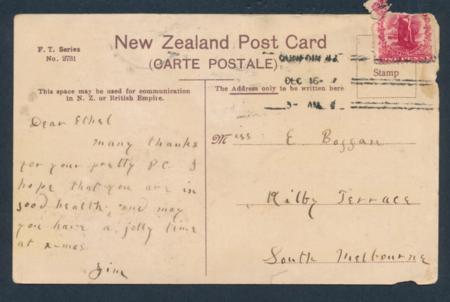 F. T. Series
No. 2731
New Zealand Post Card
(CARTE POSTALE)
This space may be used for communication
in N. Z. or British Empire.
The Address only to be written here
Stamp
DUNEDIN N.Z.
DEC 16
AM
Dear Ethel
many thanks
for your pretty P.C. I
hope that you are in
good health, and may
you have a jolly time
at x-mas
Jim
Miss E Boggan
Kilby Terrace
South Melbourne